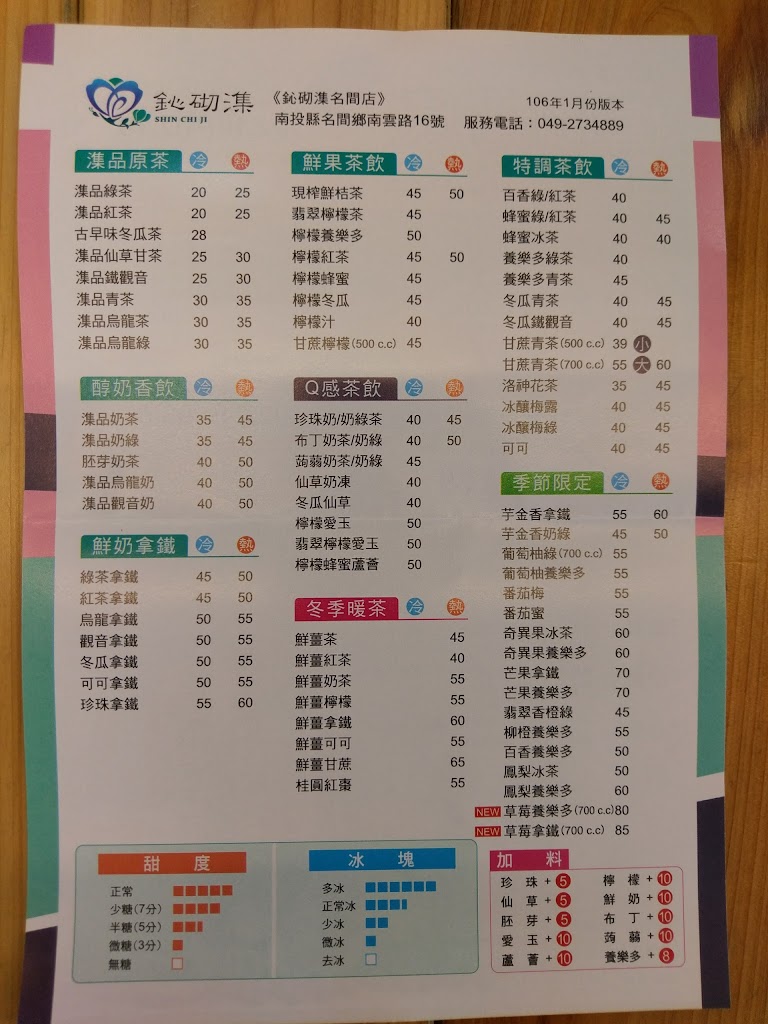 鈊砌潗
SHIN CHI JI
《鈊砌潗名間店》
106年1月份版本
南投縣名間鄉南雲路16號 服務電話：049-2734889
潗品原茶 冷 熱
潗品綠茶 20 25
潗品紅茶 20 25
古早味冬瓜茶 28
潗品仙草甘茶 25 30
潗品鐵觀音 25 30
潗品青茶 30 35
潗品烏龍茶 30 35
潗品烏龍綠 30 35
醇奶香飲 冷 熱
潗品奶茶 35 45
潗品奶綠 35 45
胚芽奶茶 40 50
潗品烏龍奶 40 50
潗品觀音奶 40 50
鮮奶拿鐵 冷 熱
綠茶拿鐵 45 50
紅茶拿鐵 45 50
烏龍拿鐵 50 55
觀音拿鐵 50 55
冬瓜拿鐵 50 55
可可拿鐵 50 55
珍珠拿鐵 55 60
鮮果茶飲 冷 熱
現榨鮮桔茶 45 50
翡翠檸檬茶 45
檸檬養樂多 50
檸檬紅茶 45 50
檸檬蜂蜜 45
檸檬冬瓜 45
檸檬汁 45
甘蔗檸檬(500 c.c) 40
Q感茶飲 冷 熱
珍珠奶/奶綠茶 40 45
布丁奶茶/奶綠 40 50
蒟蒻奶茶/奶綠 45
仙草奶凍 40
冬瓜仙草 40
檸檬愛玉 50
翡翠檸檬愛玉 50
檸檬蜂蜜蘆薈 50
冬季暖茶 冷 熱
鮮薑茶 45
鮮薑紅茶 40
鮮薑奶茶 55
鮮薑檸檬 55
鮮薑拿鐵 60
鮮薑可可 55
鮮薑甘蔗 65
桂圓紅棗 55
特調茶飲 冷 熱
百香綠/紅茶 40
蜂蜜綠/紅茶 40 45
蜂蜜冰茶 40 40
養樂多綠茶 40
養樂多青茶 45
冬瓜青茶 40 45
冬瓜鐵觀音 40 45
甘蔗青茶(500 c.c) 39 小
甘蔗青茶(700 c.c) 55 大 60
洛神花茶 35 45
冰釀梅露 40 45
冰釀梅綠 40 45
可可 40 45
季節限定 冷 熱
芋金香拿鐵 55 60
芋金香奶綠 45 50
葡萄柚綠(700 c.c) 55
葡萄柚養樂多 55
番茄梅 55
番茄蜜 55
奇異果冰茶 60
奇異果養樂多 60
芒果拿鐵 70
芒果養樂多 70
翡翠香橙綠 45
柳橙養樂多 55
百香養樂多 50
鳳梨冰茶 50
鳳梨養樂多 60
NEW 草莓養樂多(700 c.c) 80
NEW 草莓拿鐵(700 c.c) 85
甜度
正常
少糖(7分)
半糖(5分)
微糖(3分)
無糖
冰塊
多冰
正常冰
少冰
微冰
去冰
加料
珍珠+5 檸檬+10
仙草+5 鮮奶+10
胚芽+5 布丁+10
愛玉+10 蒟蒻+10
蘆薈+10 養樂多+8